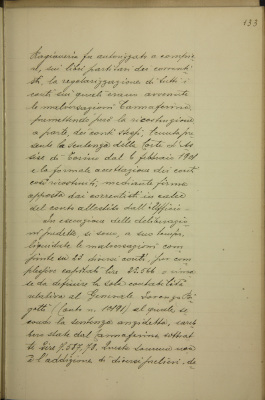 133
Ragioneria fu autorizzata a compie
re, sui libri partitari dei correnti
sti, la regolarizzazione di tutti i
conti sui quali erano avvenute
le malversazioni Cammaferina
premettendo però la ricostruzione
a parte dei conti stessi, tenuta pre
sente la Sentenza della Corte di As
sise di Torino dal 6 febbraio 1908
e la formale accettazione dei conti
così ricostruiti, mediante firma
apposta dai correntisti in calce
del conto allestito dall'Ufficio.
In esecuzione delle deliberazio
ni predette si sono, a suo tempo,
liquidate le malversazioni com
piute su 23 diversi conti, per com
plessive capitali Lire 32.566 e rima
se da definire la sola contabilità
relativa al Generale Lorenzo Ri
gotti (Conto n. ) al quale, se
condo la sentenza anzidetta, sareb
bero state dal Cammaferina sottrat
te Lire 7.557,93. Questa somma non
è l'addizione di diversi prelievi, de